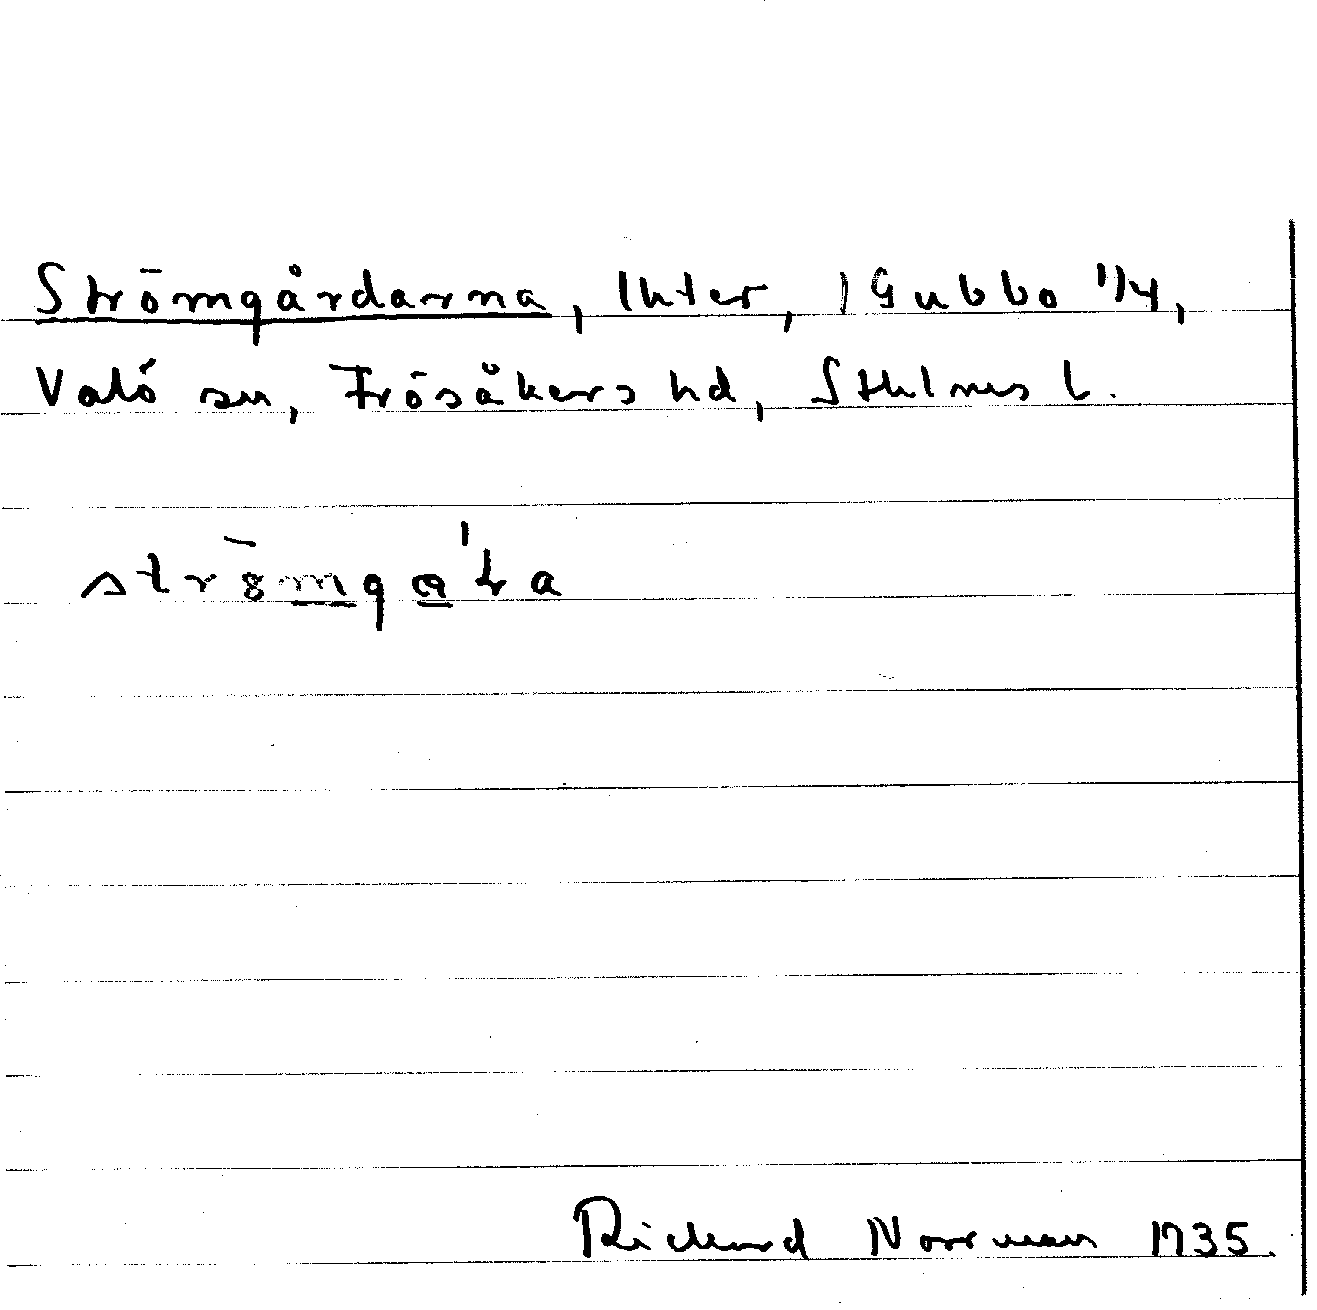 Strömgårdarna, lkter, i Gubbo 1/4,
Valö sn, Frösåkers hd, Sthlms l.
Rickard Norrman 1935.